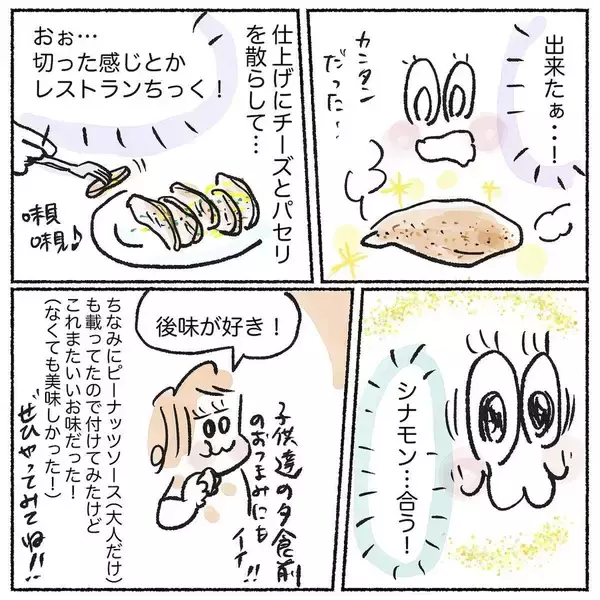 出来たぁ・・！
カンタン
だった…
仕上げにチーズとパセリ
を散らして…
おぉ…
切った感じとか
レストランちっく！
味見
味見♪
シナモン…合う！
後味が好き！
子供達の夕食前
のおつまみにも
イイ!!
ちなみにピーナッツソース(大人だけ)
も載ってたので付けてみたけど
これまたいいお味だった！
(なくても美味しかった！)
ぜひやってみてね!!